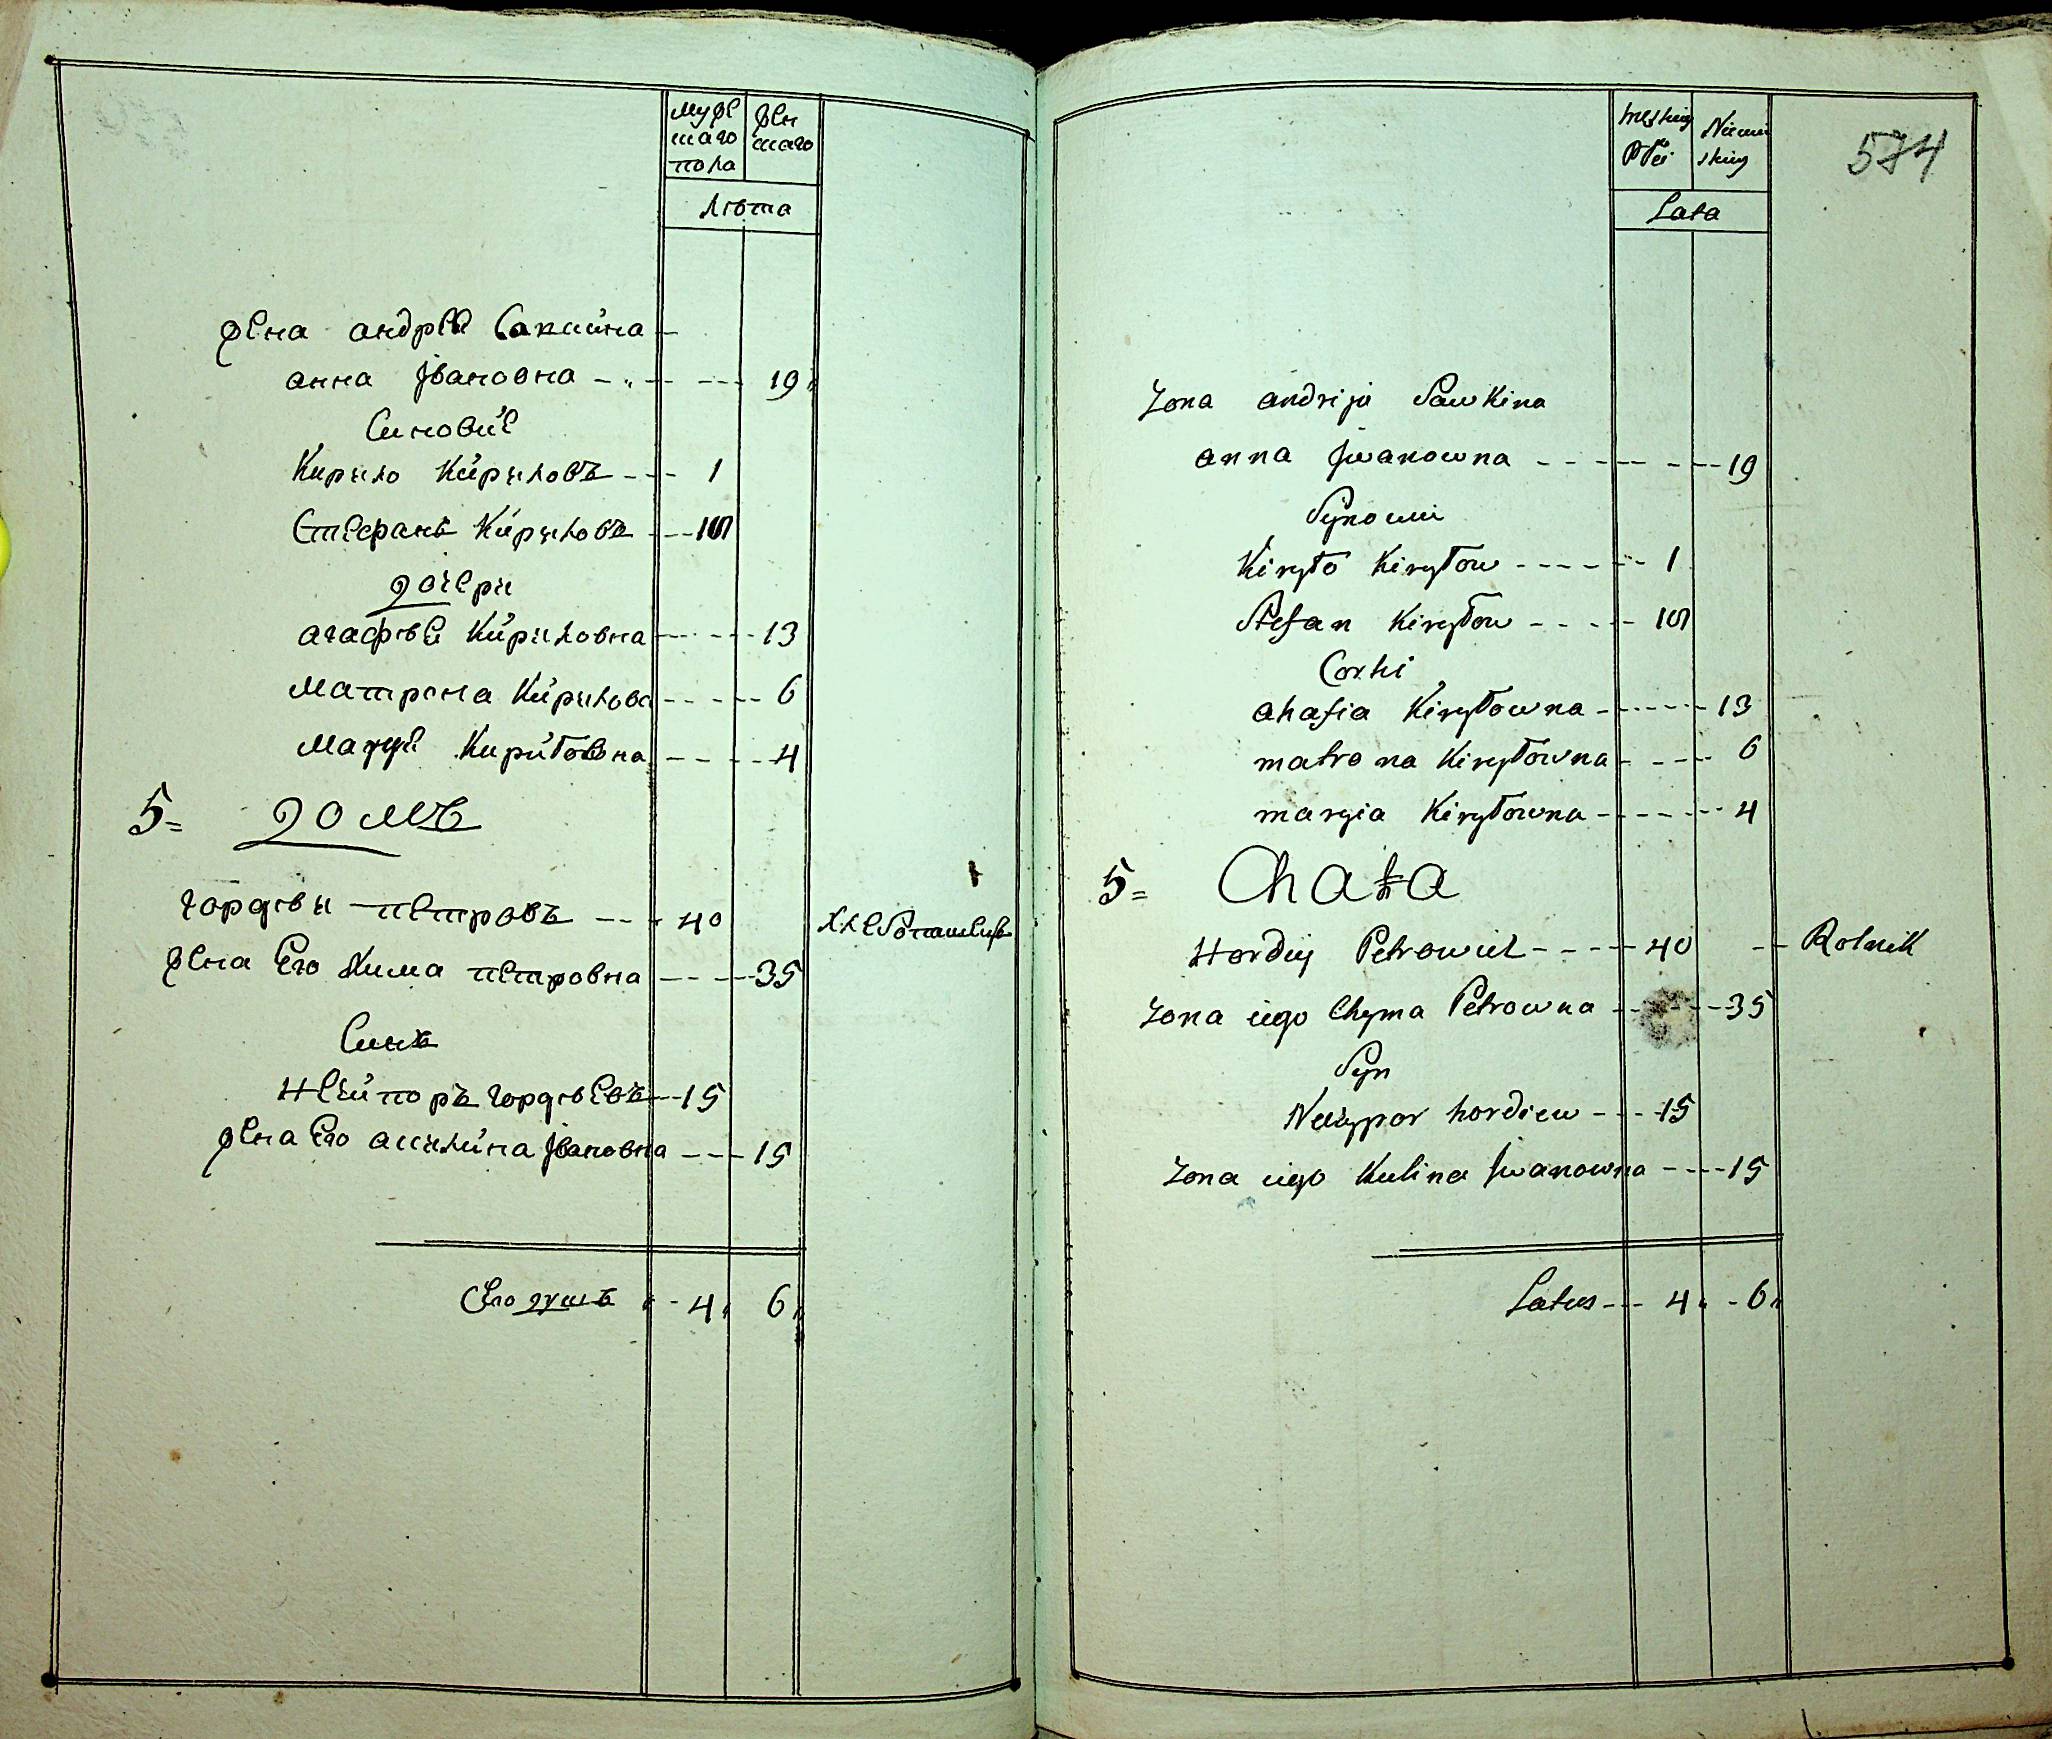 Муже
шаго
пола
жен
шаго
лѣта
жена андрея Савкина
анна Iвановна 19
Синовiе
Кирило Кирилов 1
Стефанъ Кириловъ 10
дочери
агафѣя Кириловна 13
Матрона Кирилова 6
Мария Кириловна 4
5 = домъ
гордѣи петровъ 40 хлебопашецъ
жена Его Хима петровна 35
Синъ
Нечипоръ гордѣевъ 15
жена Его акилина Iвановна 15
Его душъ 4 6
574
męskiey
Płci
Niewi
skiey
Lata
Zona andrija Sawkina
anna Jwanowna 19
Synowie
Kiryło Kiryłow 1
Stefan Kiryłow 10
Corki
ahafia Kiryłowna 13
matrona Kiryłowna 6
maryia Kiryłowna 4
5 = Chata
Hordiy Petrowicz 40 Rolnik
Zona iego Chyma Petrowna 35
Syn
Neczypor hordiew 15
Zona iego Kulina Jwanowna 15
Latus 4 6